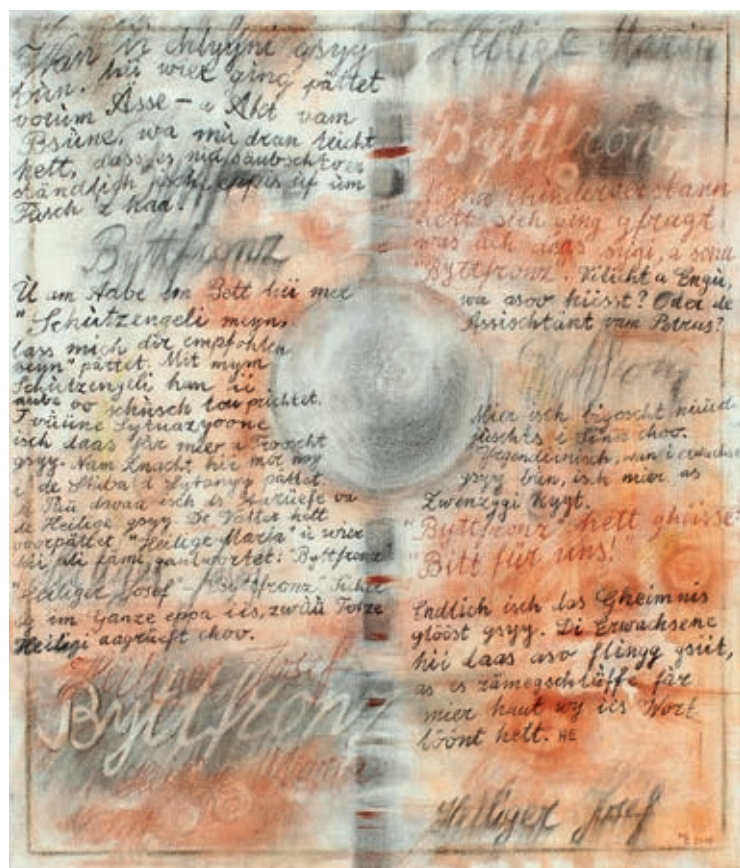 Wan i chlyyni gsyy
bün, hii wier ging pättet
vorüm Ässe – a Akt vam
Bsüne, wa mü dran teicht
hett, dass es nid säubschtver
ständligh isch, eppis üf üm
Tüsch z haa.
Byttfronz
Ü am Aabe bin Bett hii mer
"Schützengeli meyn,
lass mich dir empfohlen
seyn" pättet. Mit mym
Schützengeli han ii
aube oo schüsch tou prichtet.
I Sytuazyoone
isch daas für mier a Trooscht
gsyy. Nam Znacht hii mier
i de Stuba d Lytanyy pättet.
A Tiiu davaa isch as Aarüefe va
de Heilige gsyy. De Vatter hett
voorpättet "Heilige Maria" ü wier
hii gantwortet: "Byttfronz"
"Heiliger Josef" – "Byttfronz"
im Ganze eppa iis, zwüü Totze
Heiligi aagrüeft choo.
Heiliger Josef
Byttfronz
Maria
Heilige Maria
Byttfronz
Chinderverstann
hett sich ging gfragt,
was ach daas sigi, a sona
"Byttfronz". Vilicht a Engü,
wa asoo hiisst? Oder de
Assischtänt vam Petrus?
Byttfronz
Mier isch bigoscht niiüd
gschyts i Senn choo.
Irgendeinisch, wan i erwachse
gsyy bün, isch mier as
Zwenzggi kygt.
"Byttfronz" hett ghiisse
"Bitt für uns!"
Endlich isch das Gheimnis
glööst gsyy. Di Erwachsene
hii daas aso flingg gsiit,
as es zämegschlüffe für
mier haut wy iis Wort
töönt hett. HE
Heiliger Josef